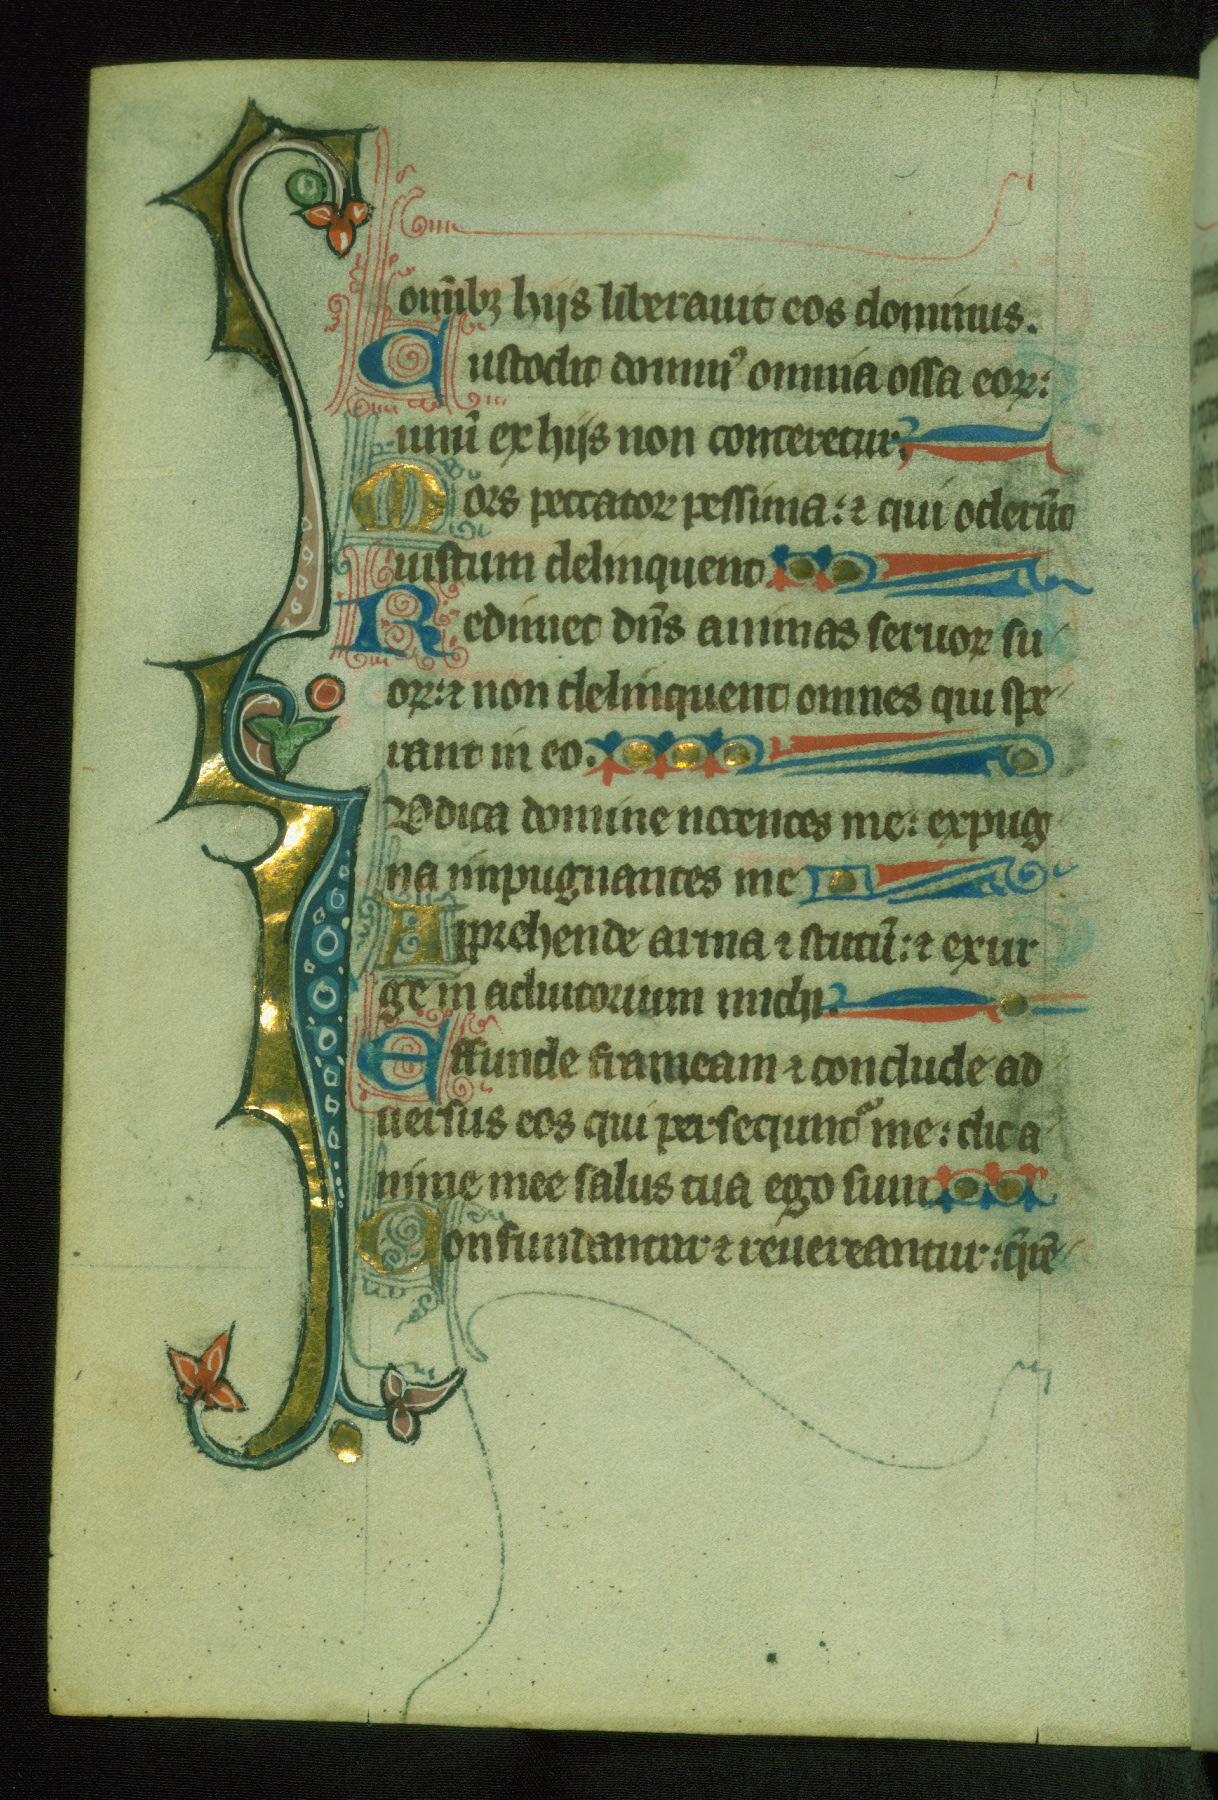 omib; hijs liberauit eos dominus.
Custodit domin⁹ omnia ossa eoꝝ:
unū ex hijs non conteretur.
Mors peccatoꝝ pessima: ⁊ qui oderūt
iustum delinquent
Redimet dn̄s animas seruoꝝ su
oꝝ: ⁊ non delinquent omnes qui spe
rant in eo.
Iudica domine nocentes me: expug
na inpugnantes me
Apprehende arma ⁊ scutū: ⁊ exur
ge in adiutorium michi.
Effunde frameam ⁊ conclude ad
uersus eos qui persequnt᷑ me: dic a
nime mee salus tua ego sum
Confundantur ⁊ reuereantur: q̄rē